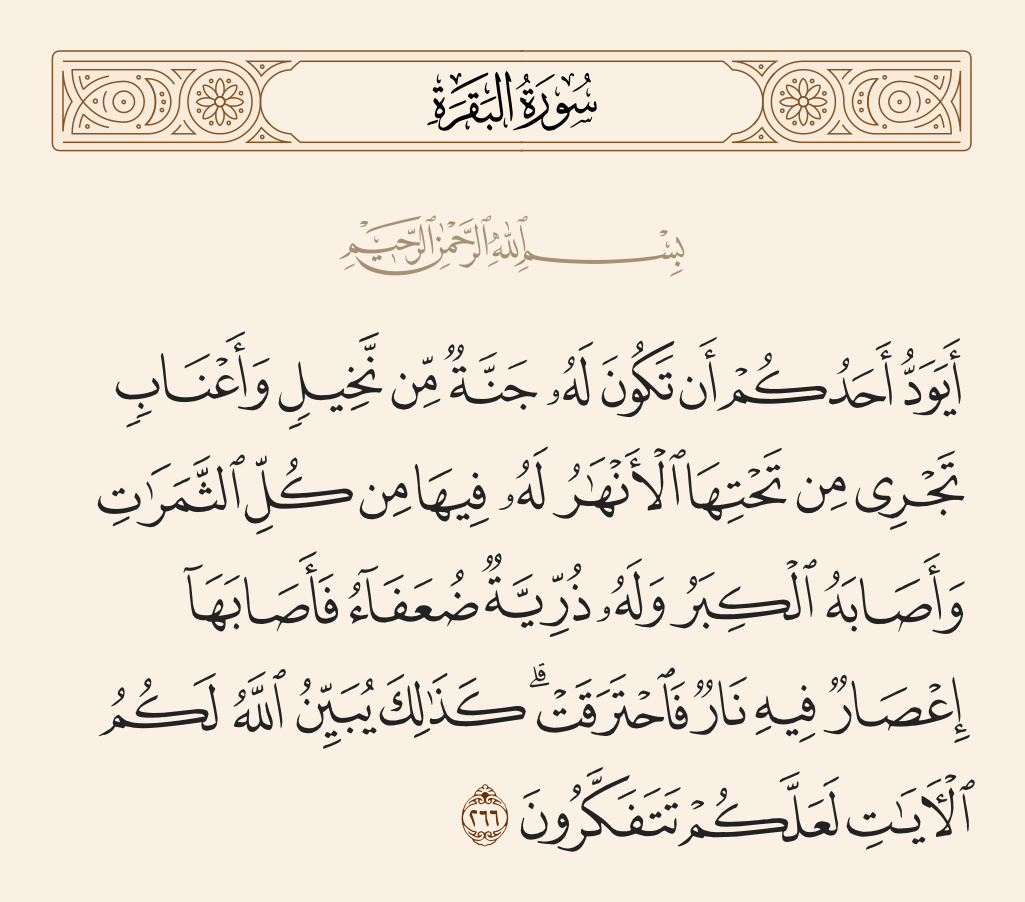 سُورَةُ البَقَرَةِ
بِسْمِ ٱللَّهِ ٱلرَّحْمَٰنِ ٱلرَّحِيمِ
أَيَوَدُّ أَحَدُكُمْ أَن تَكُونَ لَهُۥ جَنَّةٌ مِّن نَّخِيلٍ وَأَعْنَابٍ
تَجْرِى مِن تَحْتِهَا ٱلْأَنْهَٰرُ لَهُۥ فِيهَا مِن كُلِّ ٱلثَّمَرَٰتِ
وَأَصَابَهُ ٱلْكِبَرُ وَلَهُۥ ذُرِّيَّةٌ ضُعَفَآءُ فَأَصَابَهَآ
إِعْصَارٌ فِيهِ نَارٌ فَٱحْتَرَقَتْ ۗ كَذَٰلِكَ يُبَيِّنُ ٱللَّهُ لَكُمُ
ٱلْـَٔايَٰتِ لَعَلَّكُمْ تَتَفَكَّرُونَ ٢٦٦